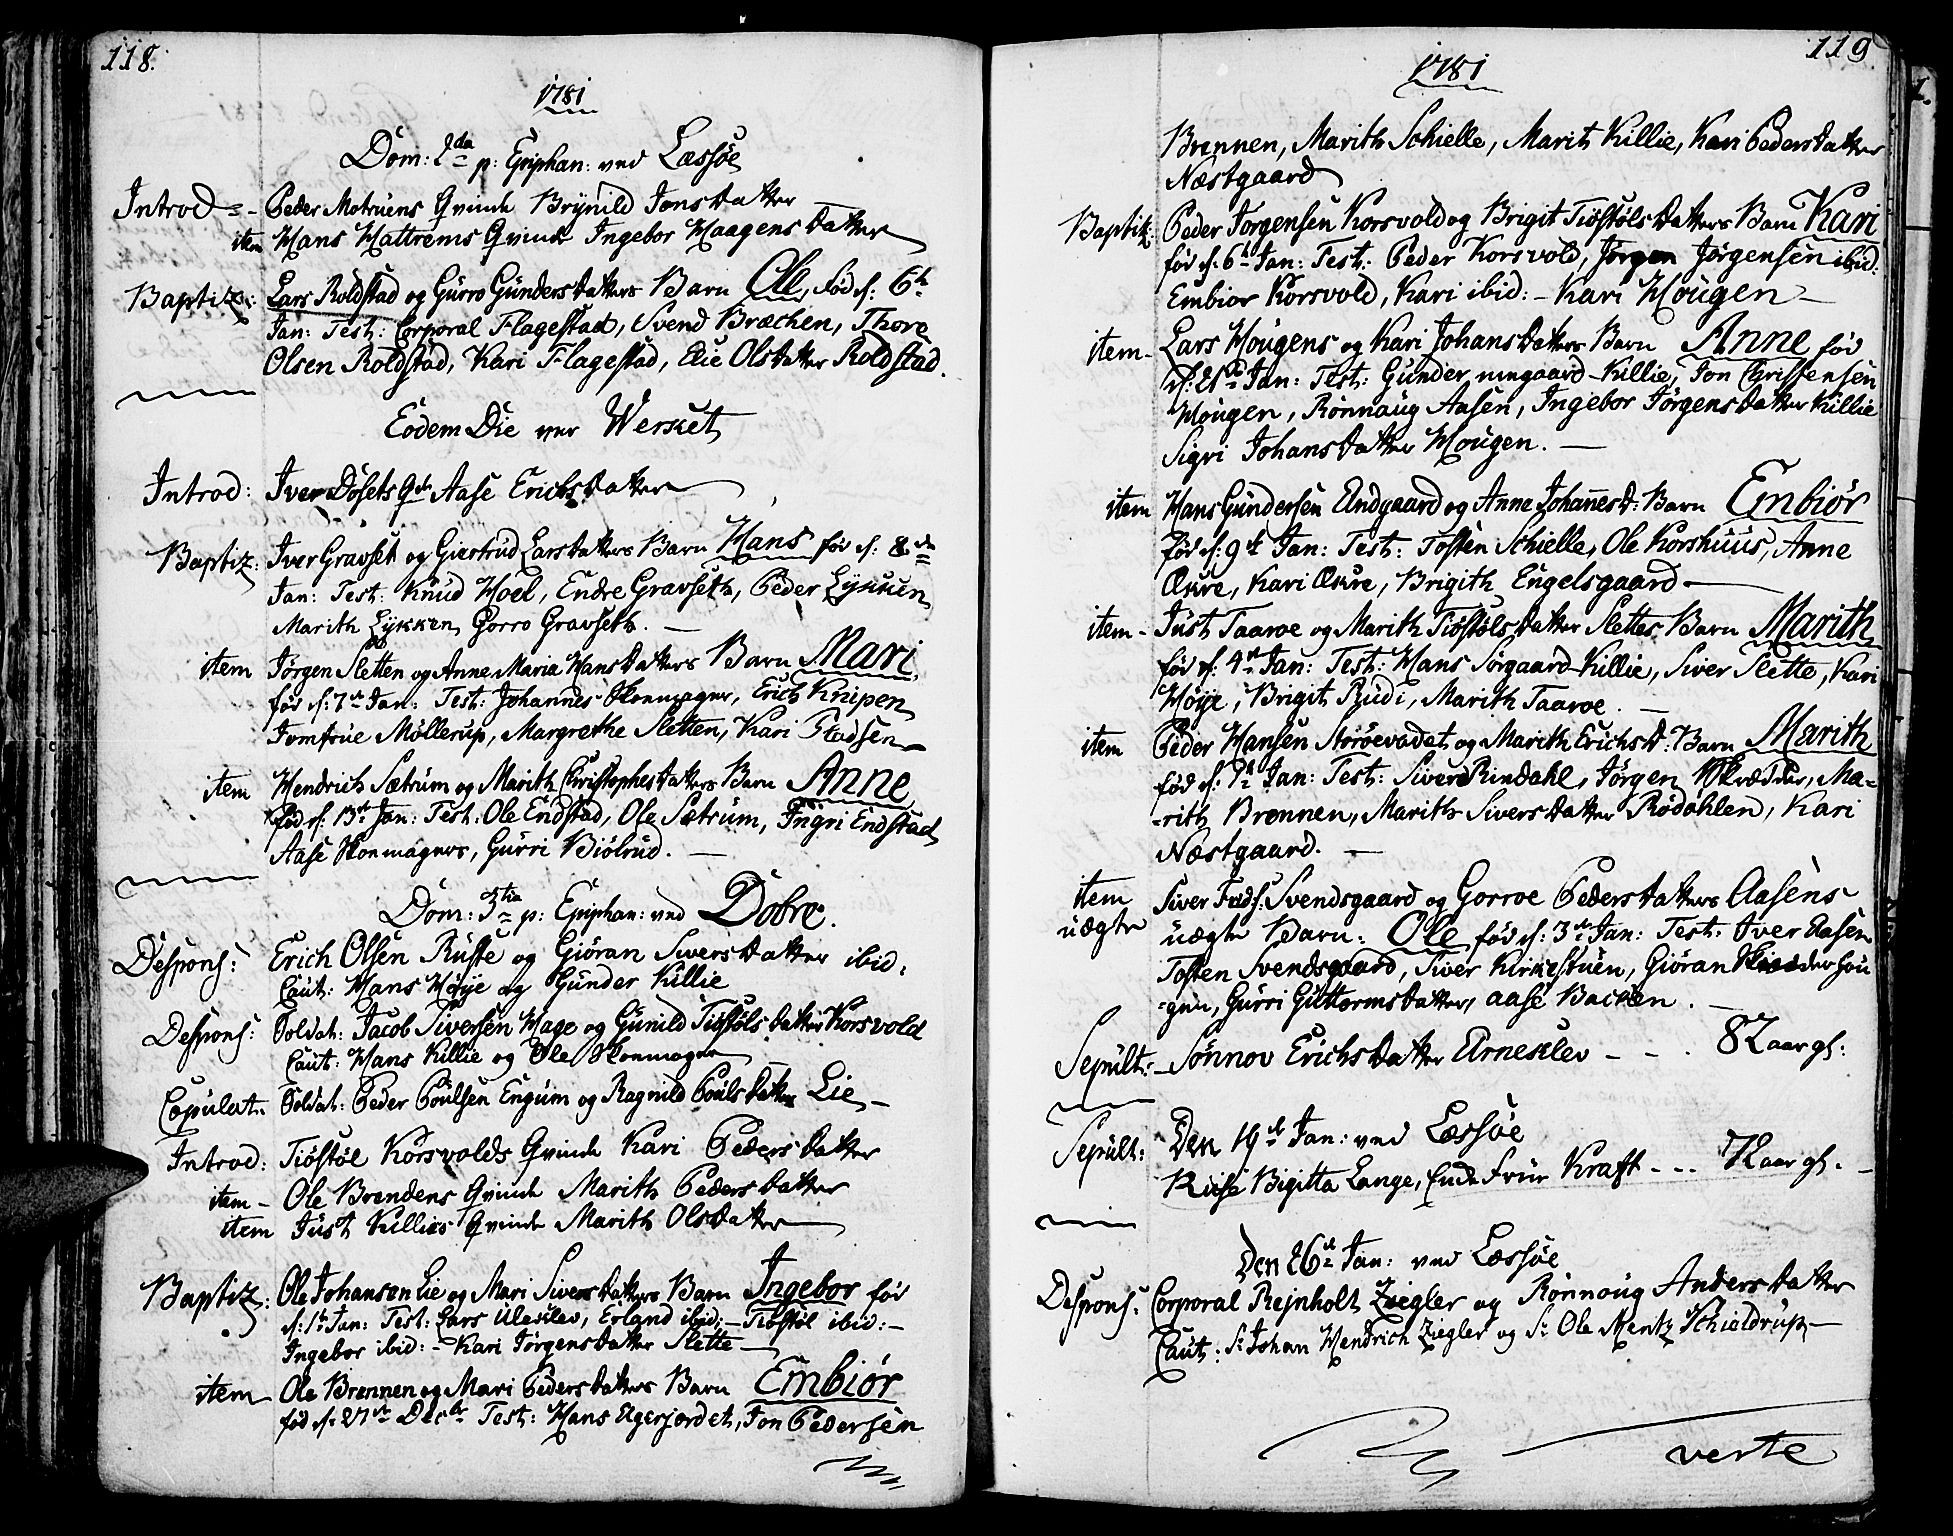 118.
1781
Dom: 2da p: Epiphan: ved Læssøe
Introd = - Peder Motruens Qvinde Brynild Jonsdatter
item Hans Hattrems Qvinde Ingebor Haagensdatter
Baptiz: Lars Roldstad og Gurro Gundersdatters Barn Ole, fød d: 6te
Jan: Test: Corporal Flagestad, Svend Bræchen, Thore
Olsen Roldstad, Kari Flagestad, Elie Olsdatter Roldstad.
Eodem Die ved Werket
Introd: Iver Dosets Qde Aase Erichsdatter
Baptiz: Iver Gravset og Giertrud Larsdatters Barn Hans fød d: 8de
Jan: Test: Knud Hoel, Endre Gravseth, Peder Lykken
Marith Lykken, Gorro Gravseth.
item Jørgen Sletten og Anne Maria Hansdatters Barn Mari
fød d: 7de Jan: Test: Johannes Skomager, Erich Knipen
Jomfrue Møllerup, Margrethe Sletten, Kari Stadsen
item Hendrich Sætrum og Marith Christophersdatters Barn Anne
fød d: 13de Jan: Test: Ole Endstad, Ole Sætrum, Ingri Endstad
Aase Skomagers, Gurri Biølrud.
Dom: 3tia p: Epiphan: ved Dofre.
Despons: Erich Olsen Ruste og Giøran Siversdatter ibid:
Caut: Hans Høye og Gunder Killie
Despons: Soldat: Jacob Siversen Hage og Gunild Tiøstølsdatter Korsvold
Caut: Hans Killie og Ole Skomager
Copulat. Soldat: Peder Poulsen Engum og Ragnild Poulsdatter Lie
Introd: Tiøstøl Korsvolds Qvinde Kari Pedersdatter
item - Ole Brendens Qvinde Marith Pedersdatter
item Just Killies Qvinde Marith Olsdatter
Baptiz: Ole Johansen Lie og Mari Siversdatters Barn Ingebor fød
d: 1te Jan: Test: Lars Ulekleu, Erland ibid: - Tiøstøl ibid: -
Ingebor ibid: - Kari Jørgensdatter Slette
item Ole Brennen og Mari Pedersdatters Barn Embiør
fød d: 27de Decbr Test: Hans Agerjordet, Jon Pedersen
119
1781
Brennen, Marith Schielle, Marit Killie, Kari Pedersdatter
Næstgaard
Baptiz: Peder Jørgensen Korsvold og Brigit Tiøstølsdatters Barn Kari
fød d: 6te Jan: Test: Peder Korsvold, Jørgen Jørgensen ibid:
Embior Korsvold, Kari ibid: - Kari Hougen
item - Lars Hougens og Kari Johansdatters Barn Anne fød
d: 21de Jan: Test: Gunder ningaard Killie, Jon Christensen
Hougen, Rønnaug Aasen, Ingebor Jørgensdatter Killie
Sigri Johansdatter Hougen.
item Hans Gundersen Andgaard og Anne Johannesd: Barn Embiør
fød d: 9de Jan: Test: Tosten Schielle, Ole Korshuus, Anne
Økre, Kari Økre, Brigith Engelsgaard
item - Just Taaroe og Marith Tiøstølsdatter Slettes Barn Marith
fød d: 4de Jan: Test: Hans Sørgaard Killie, Siver Slette, Kari
Høye, Brigit Rudi, Marith Taaroe.
item Peder Hansen Storøevadet og Marith Erichsd: Barn Marith
fød d: 7de Jan: Test: Siver Rindahl, Jørgen Skrædder, Ma-
-rith Brennen, Marith Siversdatter Rødahlen, Kari
Næstgaard.
item Siver Fredr: Svendsgaard og Gorroe Pedersdatters Aasens
uægte uægte Barn: Ole fød d: 3de Jan: Test: Iver Aasen
Tosten Svendsgaard, Siver Kirkestuen, Giøran Skrædderhou
-gen, Gurri Guttormsdatter, Aase Backen.
Sepult: - Sønnov Erichsdatter Arneklev - - . 82 aar gl:
Den 19de Jan: ved Læssøe
Sepult: Kiese Bigitta Lange, Enke Frue Kraft - - - 72 aar gl. -
Den 26de Jan: ved Læssøe
Despons: Corporal Rejnholt Ziegler og Rønnoug Andersdatter
Caut: Sr Johan Hendrich Ziegler og Sr Ole Mentz Schieldrup
verte